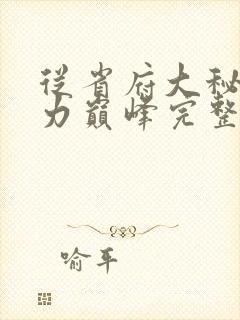 从省府大秘
力巅峰完整
喻平